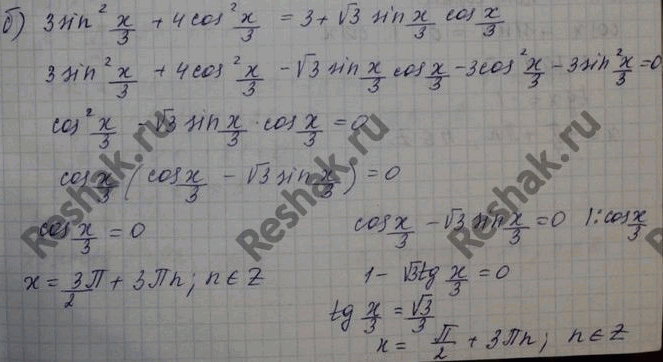 б) 3sin² x/3 + 4cos² x/3 = 3 + √3 sin x/3 cos x/3
3sin² x/3 + 4cos² x/3 - √3 sin x/3 cos x/3 - 3cos² x/3 - 3sin² x/3 = 0
cos² x/3 - √3 sin x/3 · cos x/3 = 0
cos x/3 (cos x/3 - √3 sin x/3) = 0
cos x/3 = 0
x = 3π/2 + 3πn; n ∈ Z
cos x/3 - √3 sin x/3 = 0 |: cos x/3
1 - √3 tg x/3 = 0
tg x/3 = √3/3
x = π/2 + 3πn; n ∈ Z
Reshak.ru
Reshak.ru
Reshak.ru